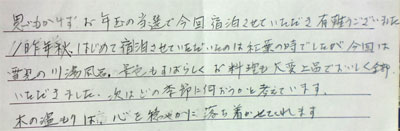 思いがけず お年玉の当選で今回宿泊させていただき有難うございました
昨年秋、はじめて宿泊させていただいたのは紅葉の時でしたが今回は
雪見の川湯風呂、景色もすばらしくお料理も大変上品でおいしく全部
いただきました。次はどの季節に伺おうかと考えています。
木の温もりは、心を穏やかに落ち着かせてくれます